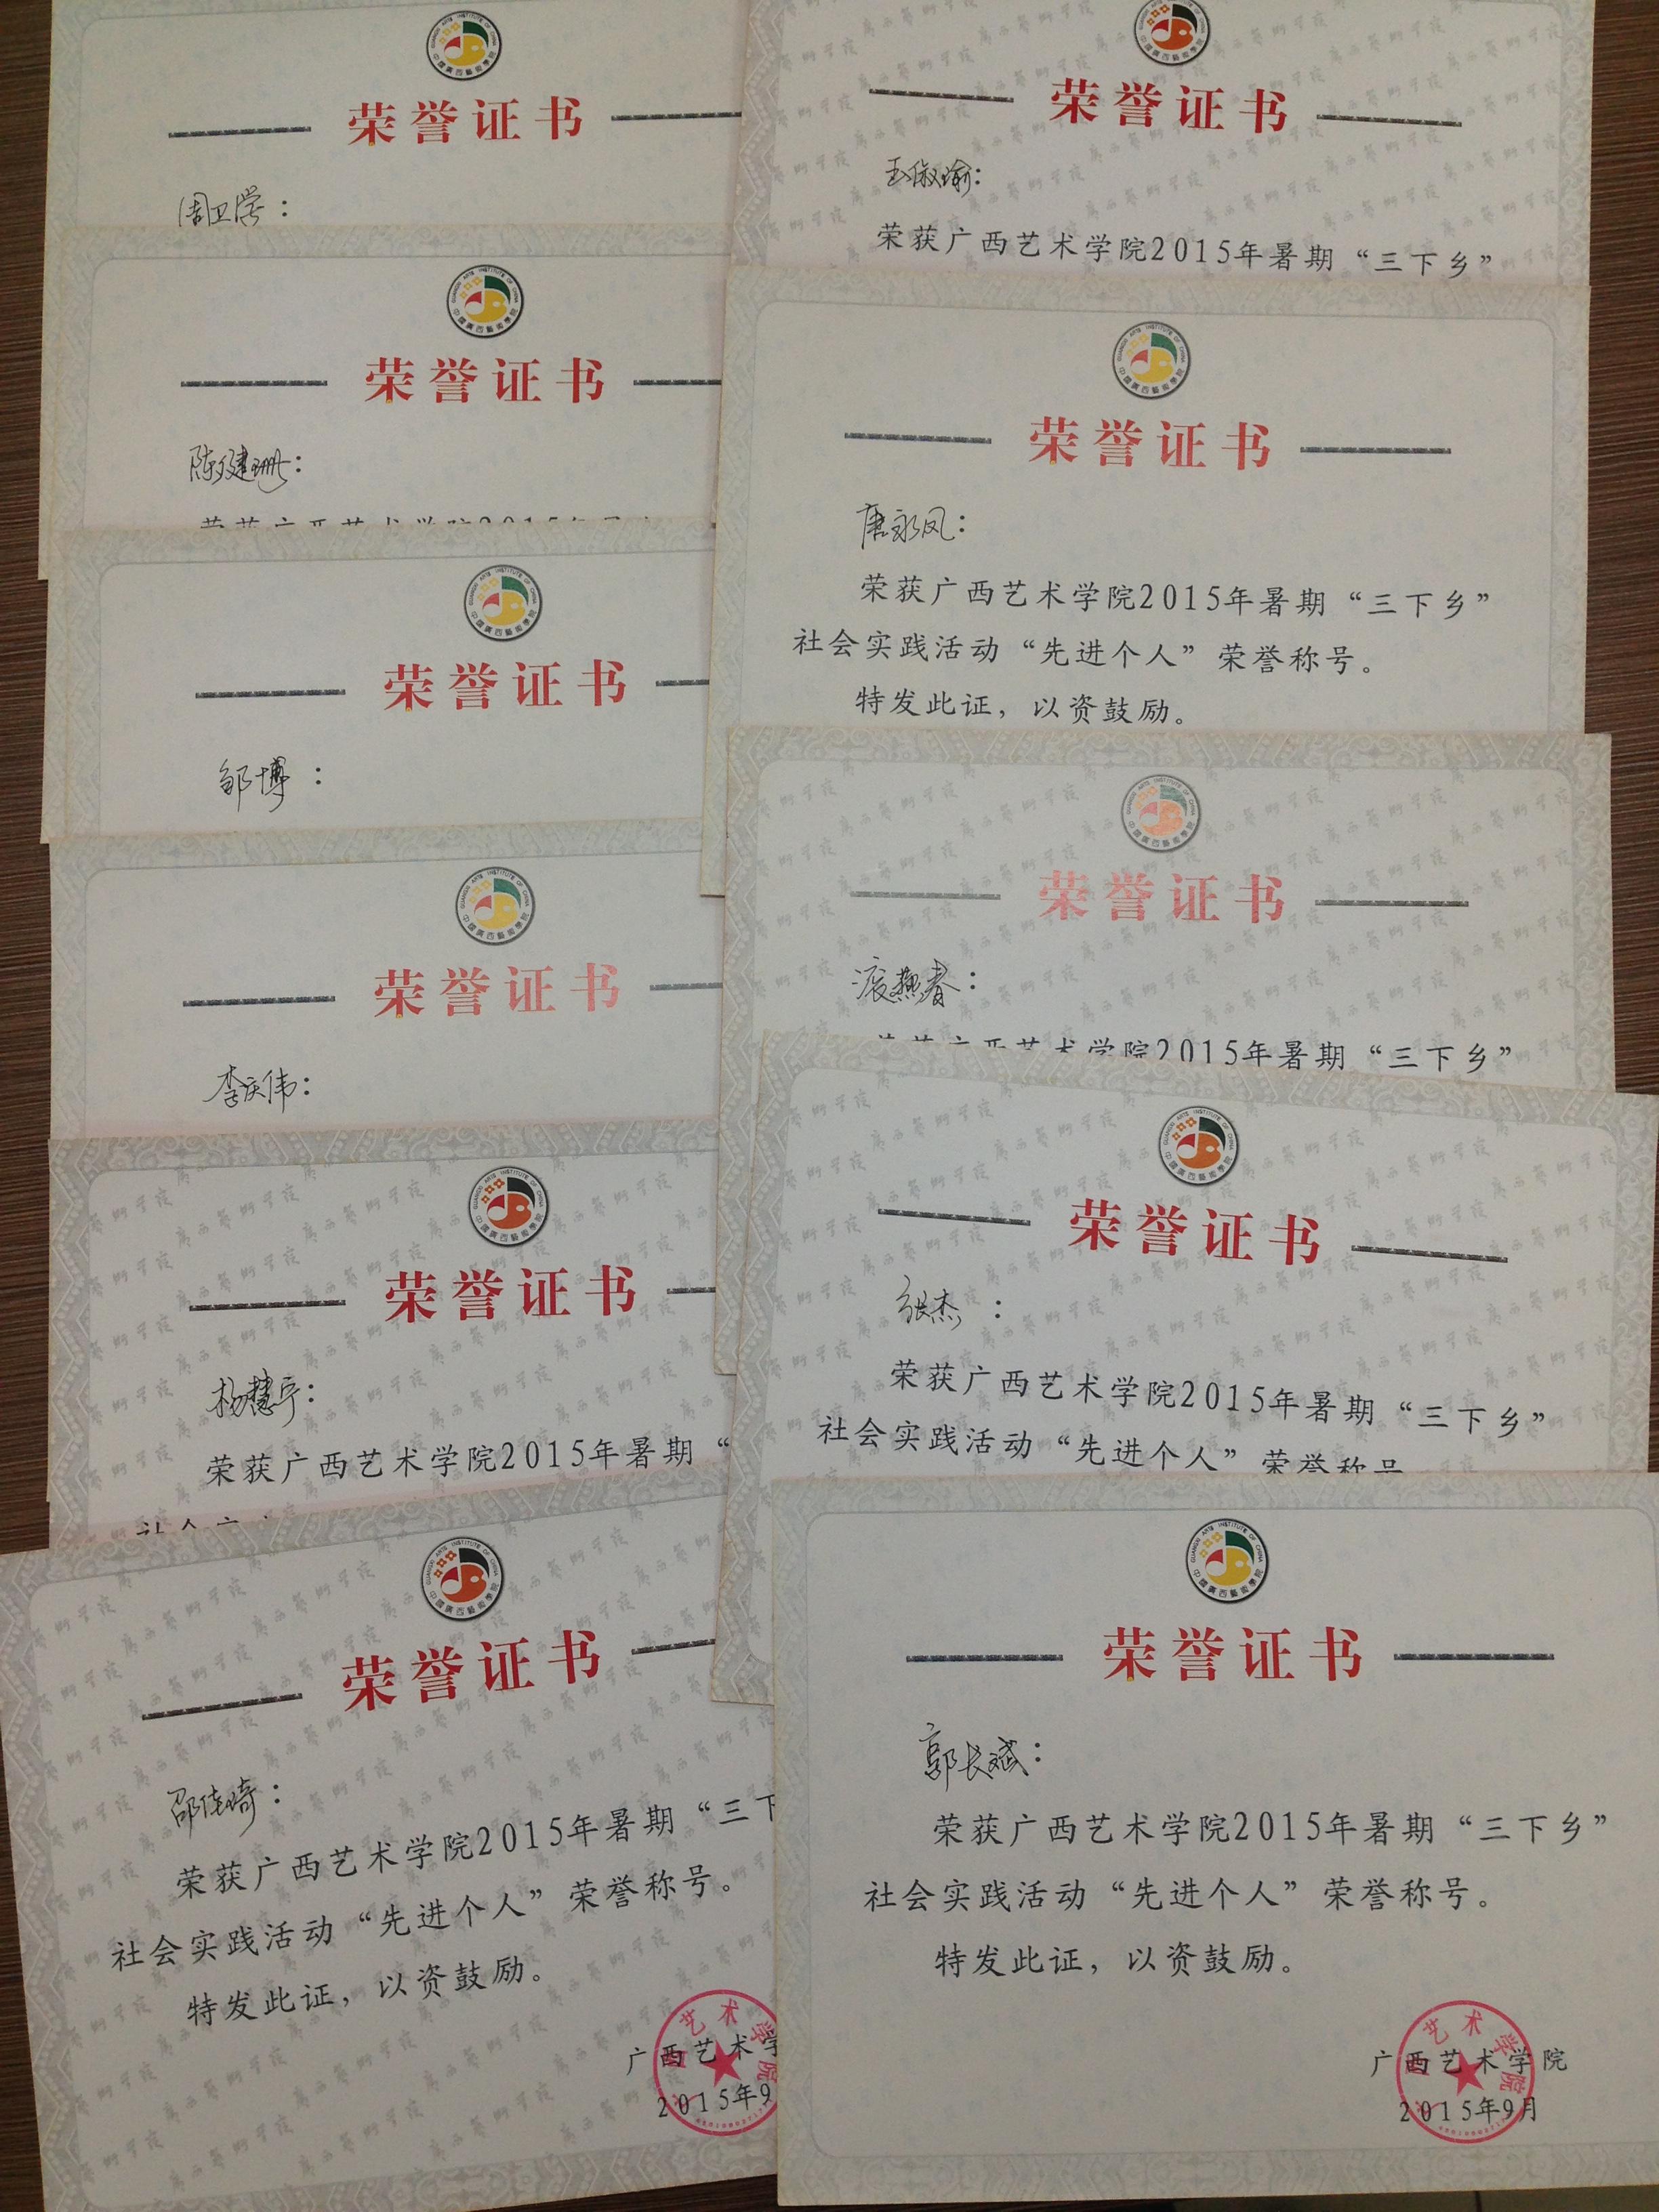 荣誉证书
周卫学：
荣誉证书
陈健珊：
荣誉证书
邹博：
荣誉证书
李庆伟：
荣誉证书
杨慧宇：
荣获广西艺术学院2015年暑期“
荣誉证书
邵佳琦：
荣获广西艺术学院2015年暑期“三下
社会实践活动“先进个人”荣誉称号。
特发此证，以资鼓励。
广西艺术学
2015年9
荣誉证书
玉淑瑜：
荣获广西艺术学院2015年暑期“三下乡”
荣誉证书
唐永凤：
荣获广西艺术学院2015年暑期“三下乡”
社会实践活动“先进个人”荣誉称号。
特发此证，以资鼓励。
荣誉证书
荣获广西艺术学院2015年暑期“三下乡”
荣誉证书
张杰：
荣获广西艺术学院2015年暑期“三下乡”
社会实践活动“先进个人”荣誉称号
荣誉证书
郭长斌：
荣获广西艺术学院2015年暑期“三下乡”
社会实践活动“先进个人”荣誉称号。
特发此证，以资鼓励。
广西艺术学院
2015年9月